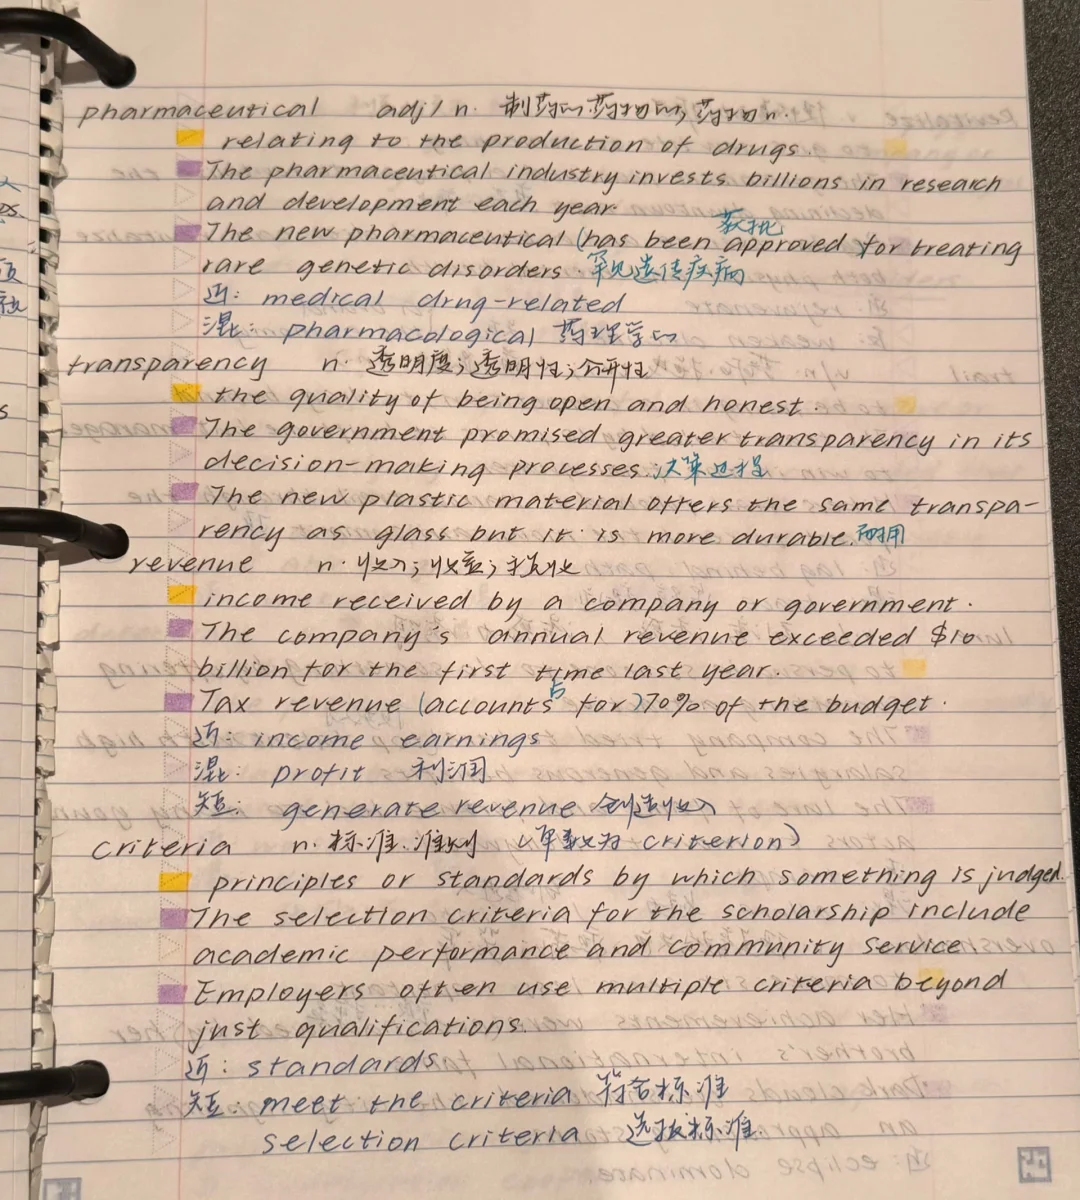 pharmaceutical adj/n. 制药的,药物的,药物n.
relating to the production of drugs.
The pharmaceutical industry invests billions in research
and development each year.
获批
The new pharmaceutical (has been approved for treating
rare genetic disorders. 罕见遗传疾病
近: medical drug-related
混: pharmacological 药理学的
transparency n. 透明度;透明性;公开性
the quality of being open and honest.
The government promised greater transparency in its
decision-making processes.决策过程
The new plastic material offers the same transpa-
rency as glass but it is more durable.耐用
revenue n. 收入;收益;税收
income received by a company or government.
The company's annual revenue exceeded $10
billion for the first time last year.
占
Tax revenue (accounts for)70% of the budget.
近: income earnings
混: profit 利润
短: generate revenue 创造收入
criteria n. 标准.准则 (单数为 criterion)
principles or standards by which something is judged.
The selection criteria for the scholarship include
academic performance and community service
Employers often use multiple criteria beyond
just qualifications.
近: standards
短: meet the criteria 符合标准
selection criteria 选拔标准.